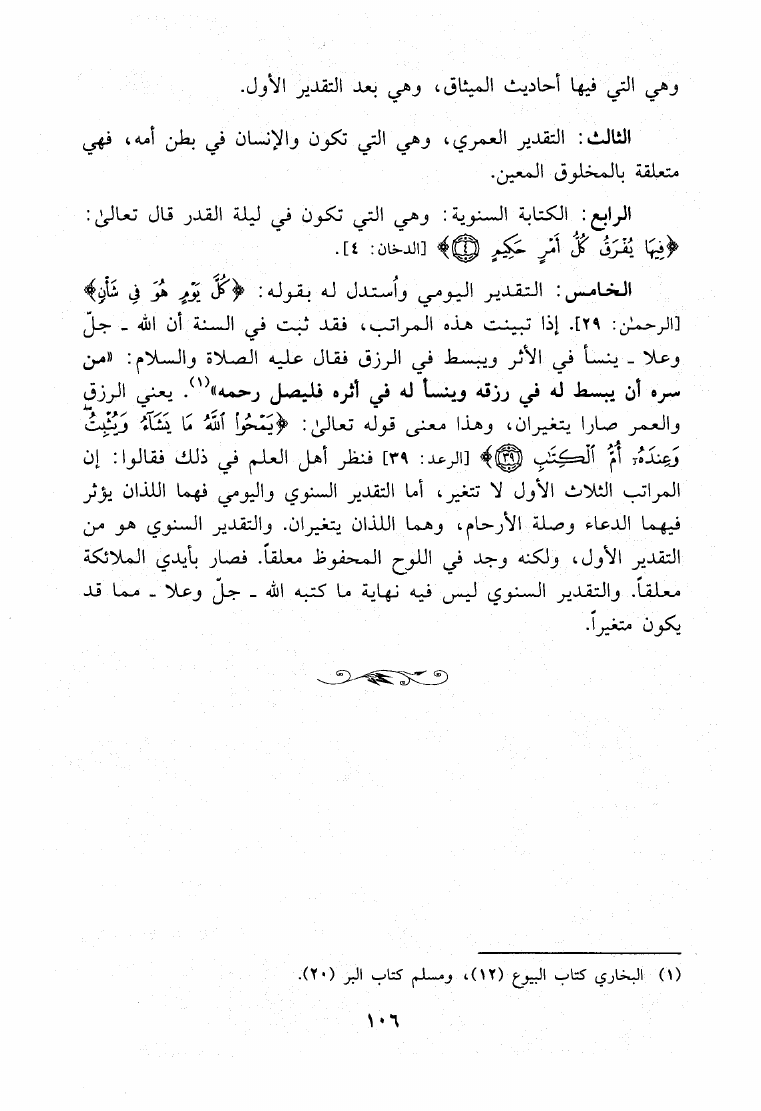 وهي التي فيها أحاديث الميثاق، وهي بعد التقدير الأول.
الثالث: التقدير العمري، وهي التي تكون والإنسان في بطن أمه، فهي
متعلقة بالمخلوق المعين.
الرابع: الكتابة السنوية: وهي التي تكون في ليلة القدر قال تعالىٰ:
﴿فِيهَا يُفْرَقُ كُلُّ أَمْرٍ حَكِيمٍ ۝٤﴾ [الدخان: ٤].
الخامس: التقدير اليومي وأُستدل له بقوله: ﴿كُلَّ يَوْمٍ هُوَ فِي شَأْنٍ﴾
[الرحمٰن: ٢٩]. إذا تبينت هذه المراتب، فقد ثبت في السنة أن الله ـ جلّ
وعلا ـ ينسأ في الأثر ويبسط في الرزق فقال عليه الصلاة والسلام: «من
سره أن يبسط له في رزقه وينسأ له في أثره فليصل رحمه»(١). يعني الرزق
والعمر صارا يتغيران، وهذا معنى قوله تعالىٰ: ﴿يَمْحُوا۟ ٱللَّهُ مَا يَشَآءُ وَيُثْبِتُ ۖ
وَعِندَهُۥٓ أُمُّ ٱلْكِتَٰبِ ۝٣٩﴾ [الرعد: ٣٩] فنظر أهل العلم في ذلك فقالوا: إن
المراتب الثلاث الأول لا تتغير، أما التقدير السنوي واليومي فهما اللذان يؤثر
فيهما الدعاء وصلة الأرحام، وهما اللذان يتغيران. والتقدير السنوي هو من
التقدير الأول، ولكنه وجد في اللوح المحفوظ معلقاً. فصار بأيدي الملائكة
معلقاً. والتقدير السنوي ليس فيه نهاية ما كتبه الله ـ جلّ وعلا ـ مما قد
يكون متغيراً.
(١) البخاري كتاب البيوع (١٢)، ومسلم كتاب البر (٢٠).
١٠٦